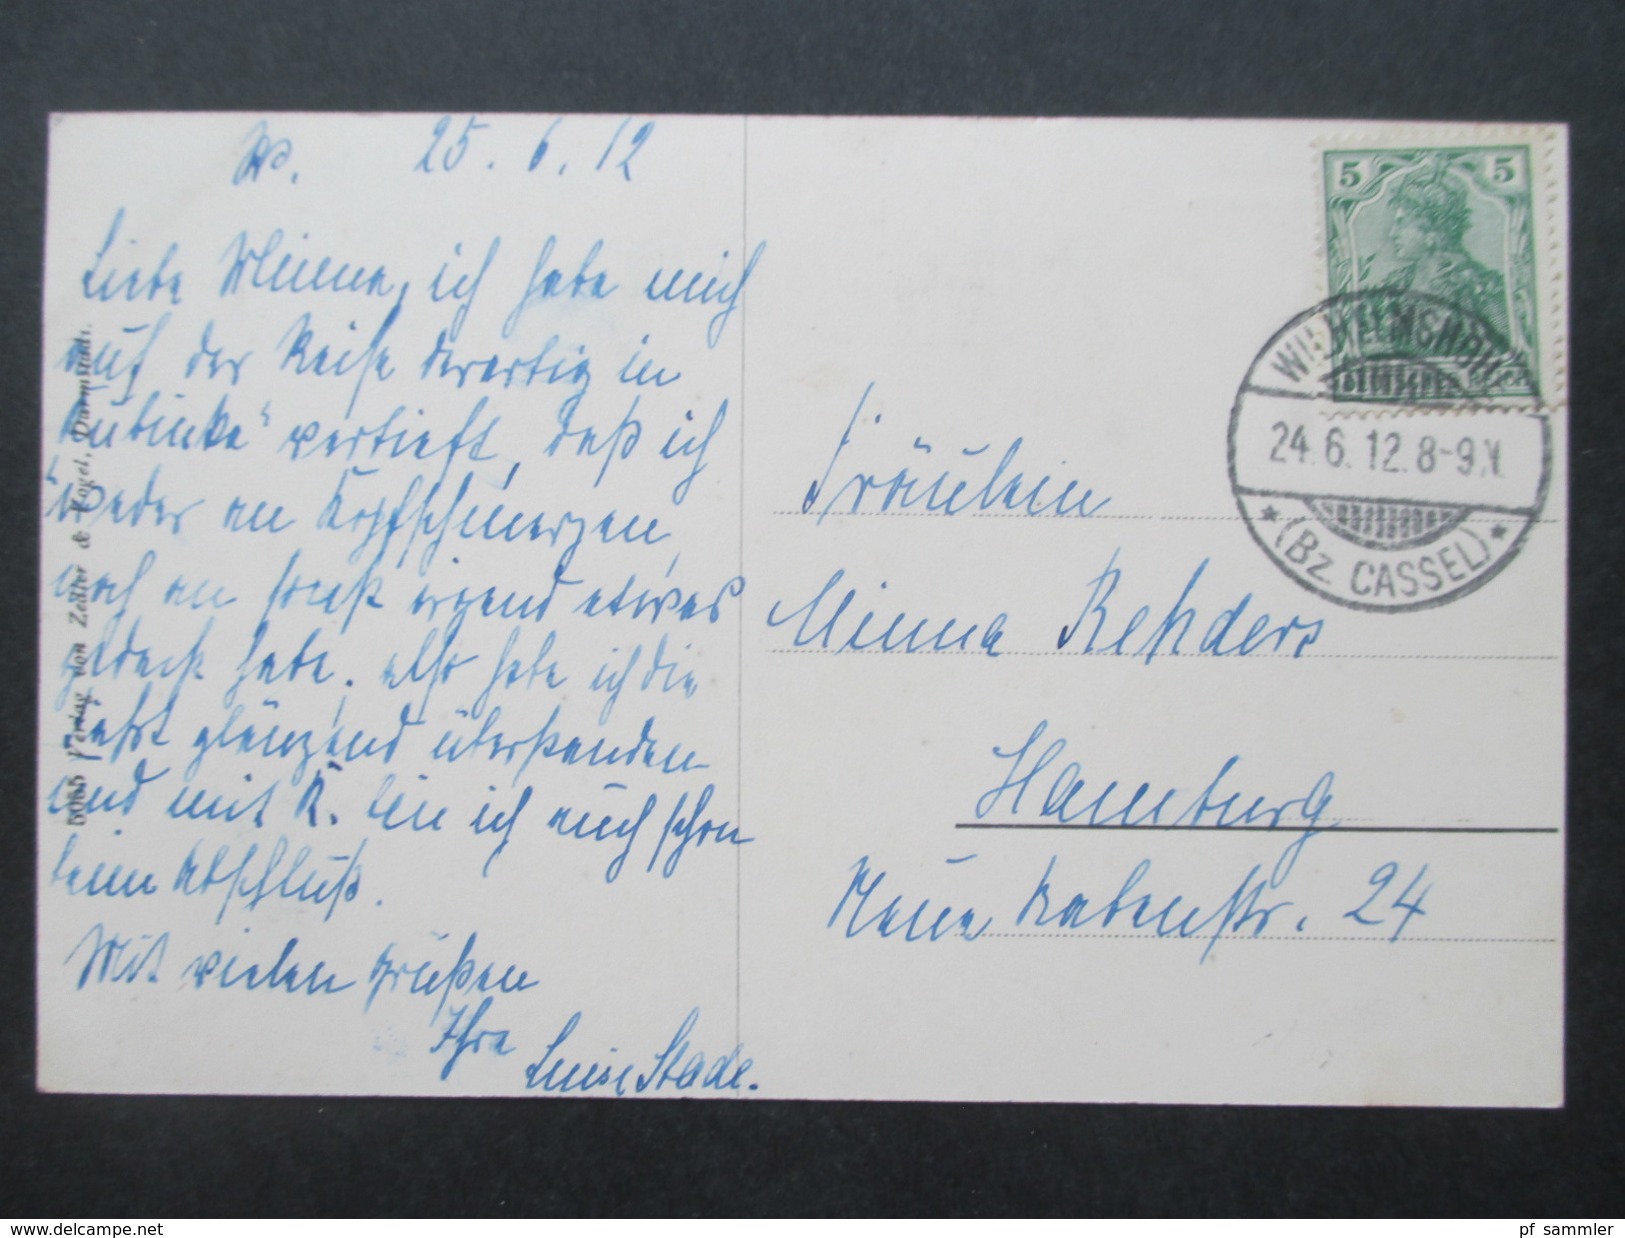 W. 25.6.12
Liebe Minna, ich habe mich
auf der Reise derartig in
"Kubinke" vertieft, daß ich
weder an Kopfschmerzen,
noch an sonst irgend etwas
gedacht habe. Also habe ich die
Fahrt glänzend überstanden
und mit K. bin ich auch schon
beim Abschluß.
Mit vielen Grüßen
Ihre
Luise Stade.
5065 Verlag von Zedler & Vogel, Darmstadt.
5 5
DEUTSCHES REICH
WILHELMSHÖHE
24.6.12.8-9N.
* (Bz. CASSEL) *
Fräulein
Minna Rehders
Hamburg
Neue Rabenstr. 24
www.delcampe.net
pf_sammler